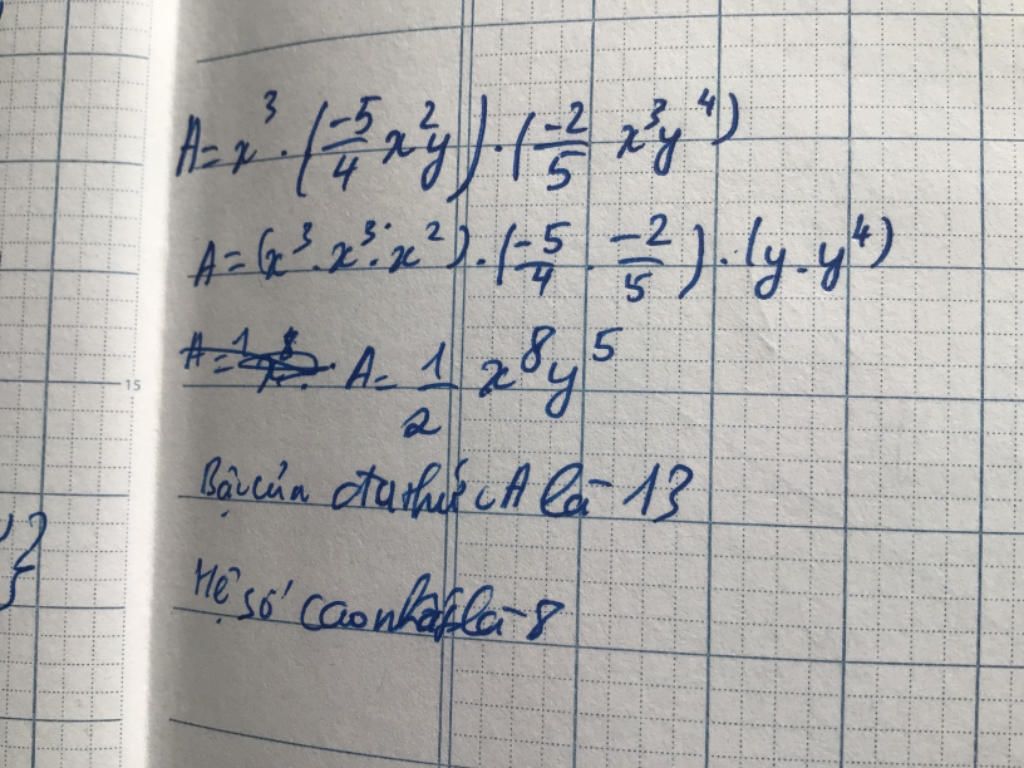 A = x³ . (-5/4 x²y) . (-2/5 x³y⁴)
A = (x³ . x³ . x²) . (-5/4 . -2/5) . (y . y⁴)
A = 1/2 x⁸y⁵
15
Bậc của đa thức A là 13
Hệ số cao nhất là 8